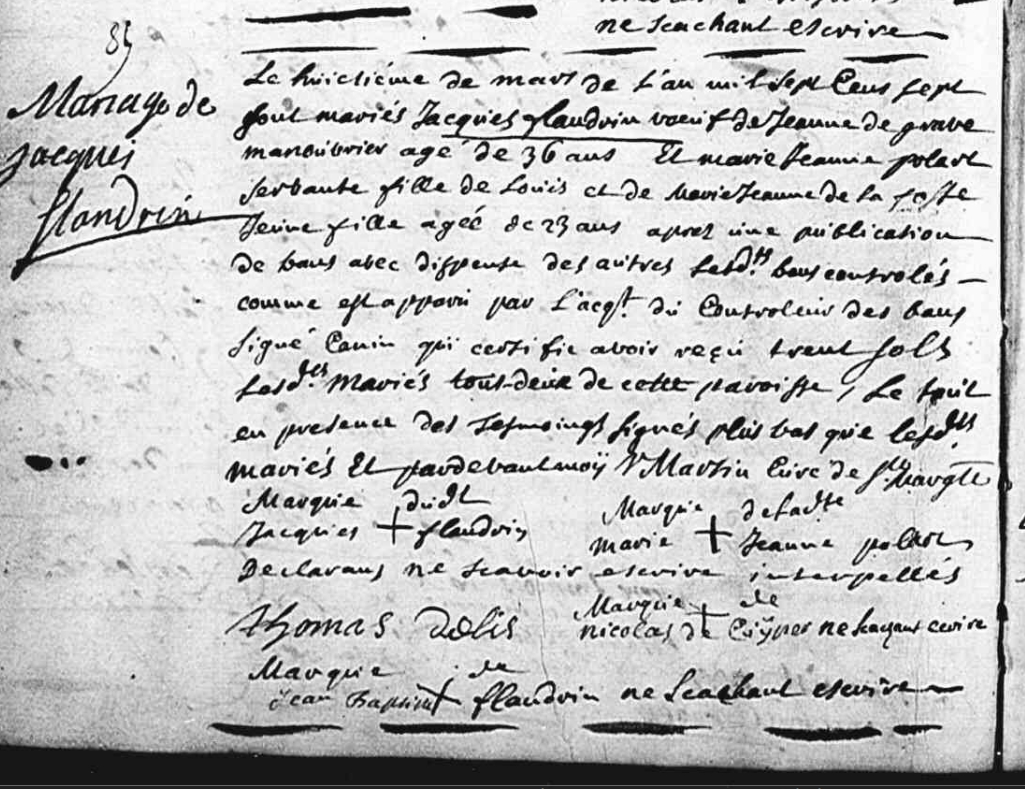 ne scachant escrire
85
Mariage de
Jacques
flandrin
Le huictiéme de mars de L'an mil sept Cens sept
sont mariés Jacques flandrin voeuf de Jeanne de grave
manoüvrier agé de 36 ans Et marie Jeanne polart
servante fille de Louis et de Marie Jeanne de la coste
Jeune fille ageé de 23 ans apres une publication
de bans avec dispense des autres Lesd.ts bans controlés
comme est apparü par L'acq.t dü Controleur des bans
signé Canin qui certifie avoir reçü trent sols
Lesd.ts Mariés tout deux de cette paroisse, Le tout
en presence des Tesmoings signés plus bas que lesd.ts
mariés Et pardevant moÿ Martin Cüré de S.te Margte
Marque düdt
Jacques + flandrin
Marque deladte
marie + Jeanne polart
Declarans ne scavoir escrire interpellés
Thomas Delis
Marque + de
nicolas de Cuÿper ne scachant ecrire
Marque de
Jean Baptiste + flandrin ne scachant escrire